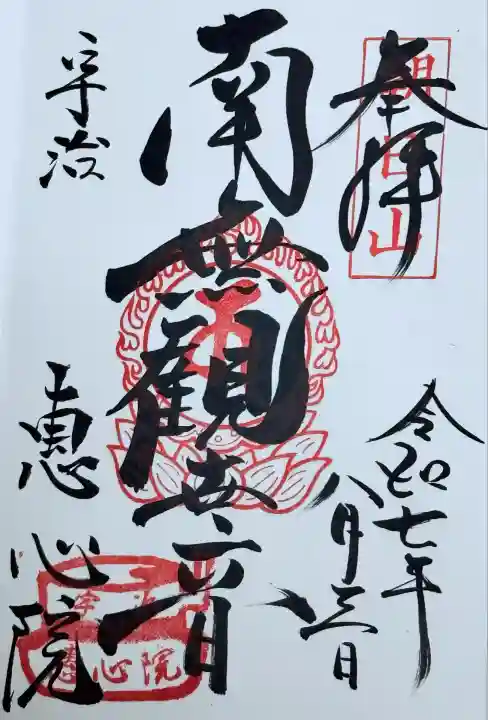 奉拝
朝日山
令和七年
八月三日
南無観世音
宇治
恵心院
宇治
恵心院